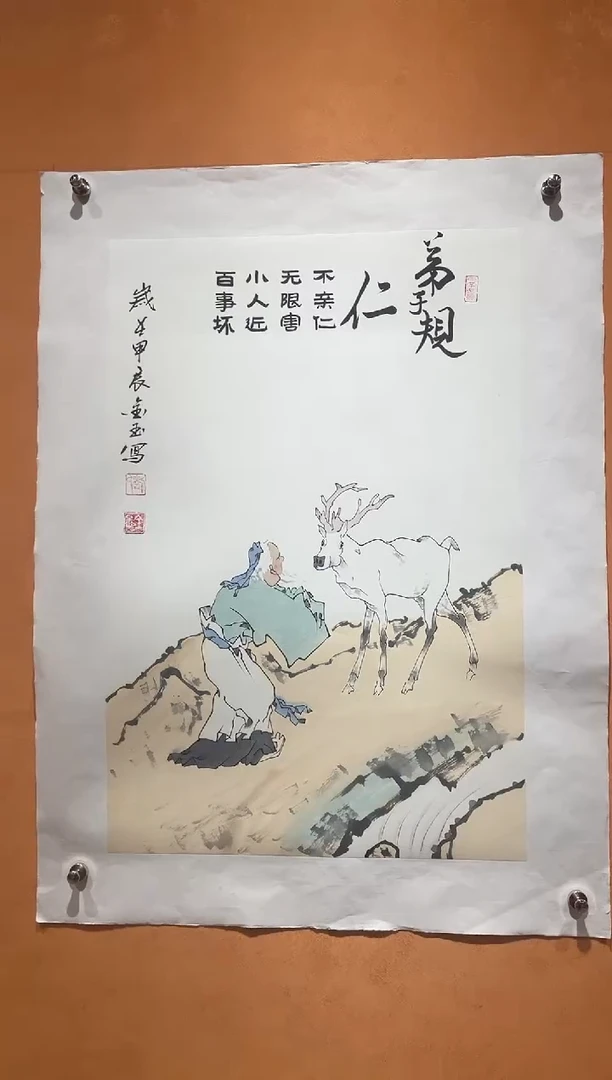 弟子规
仁
不亲仁
无限害
小人近
百事坏
岁在甲辰金玉写